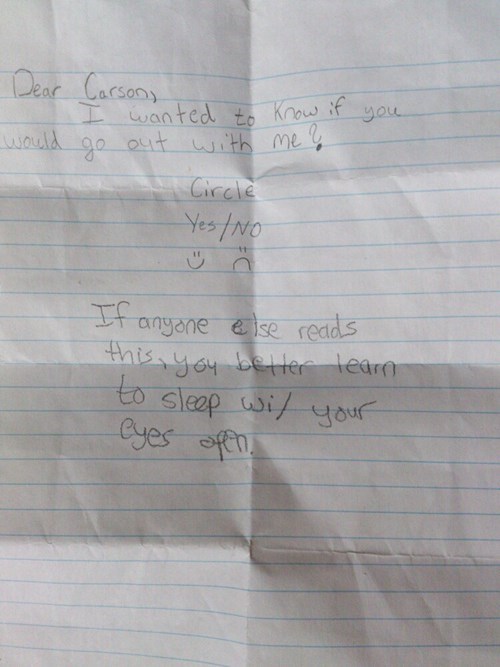 Dear Carson,
I wanted to know if you
would go out with me?
Circle
Yes/NO
If anyone else reads
this, you better learn
to sleep wi/ your
eyes open.